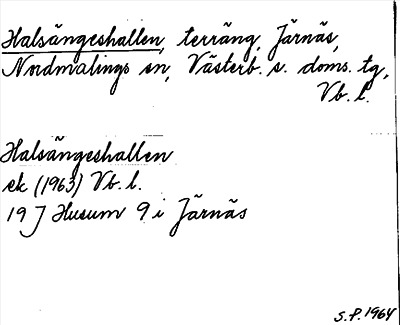 Halsängeshallen, terräng, Järnäs,
Nordmalings sn, Västerb. s. doms. tg,
Vb. l.
Halsängeshallen
ek (1963) Vb. l.
19 J Husum 9 i Järnäs
S.P. 1964